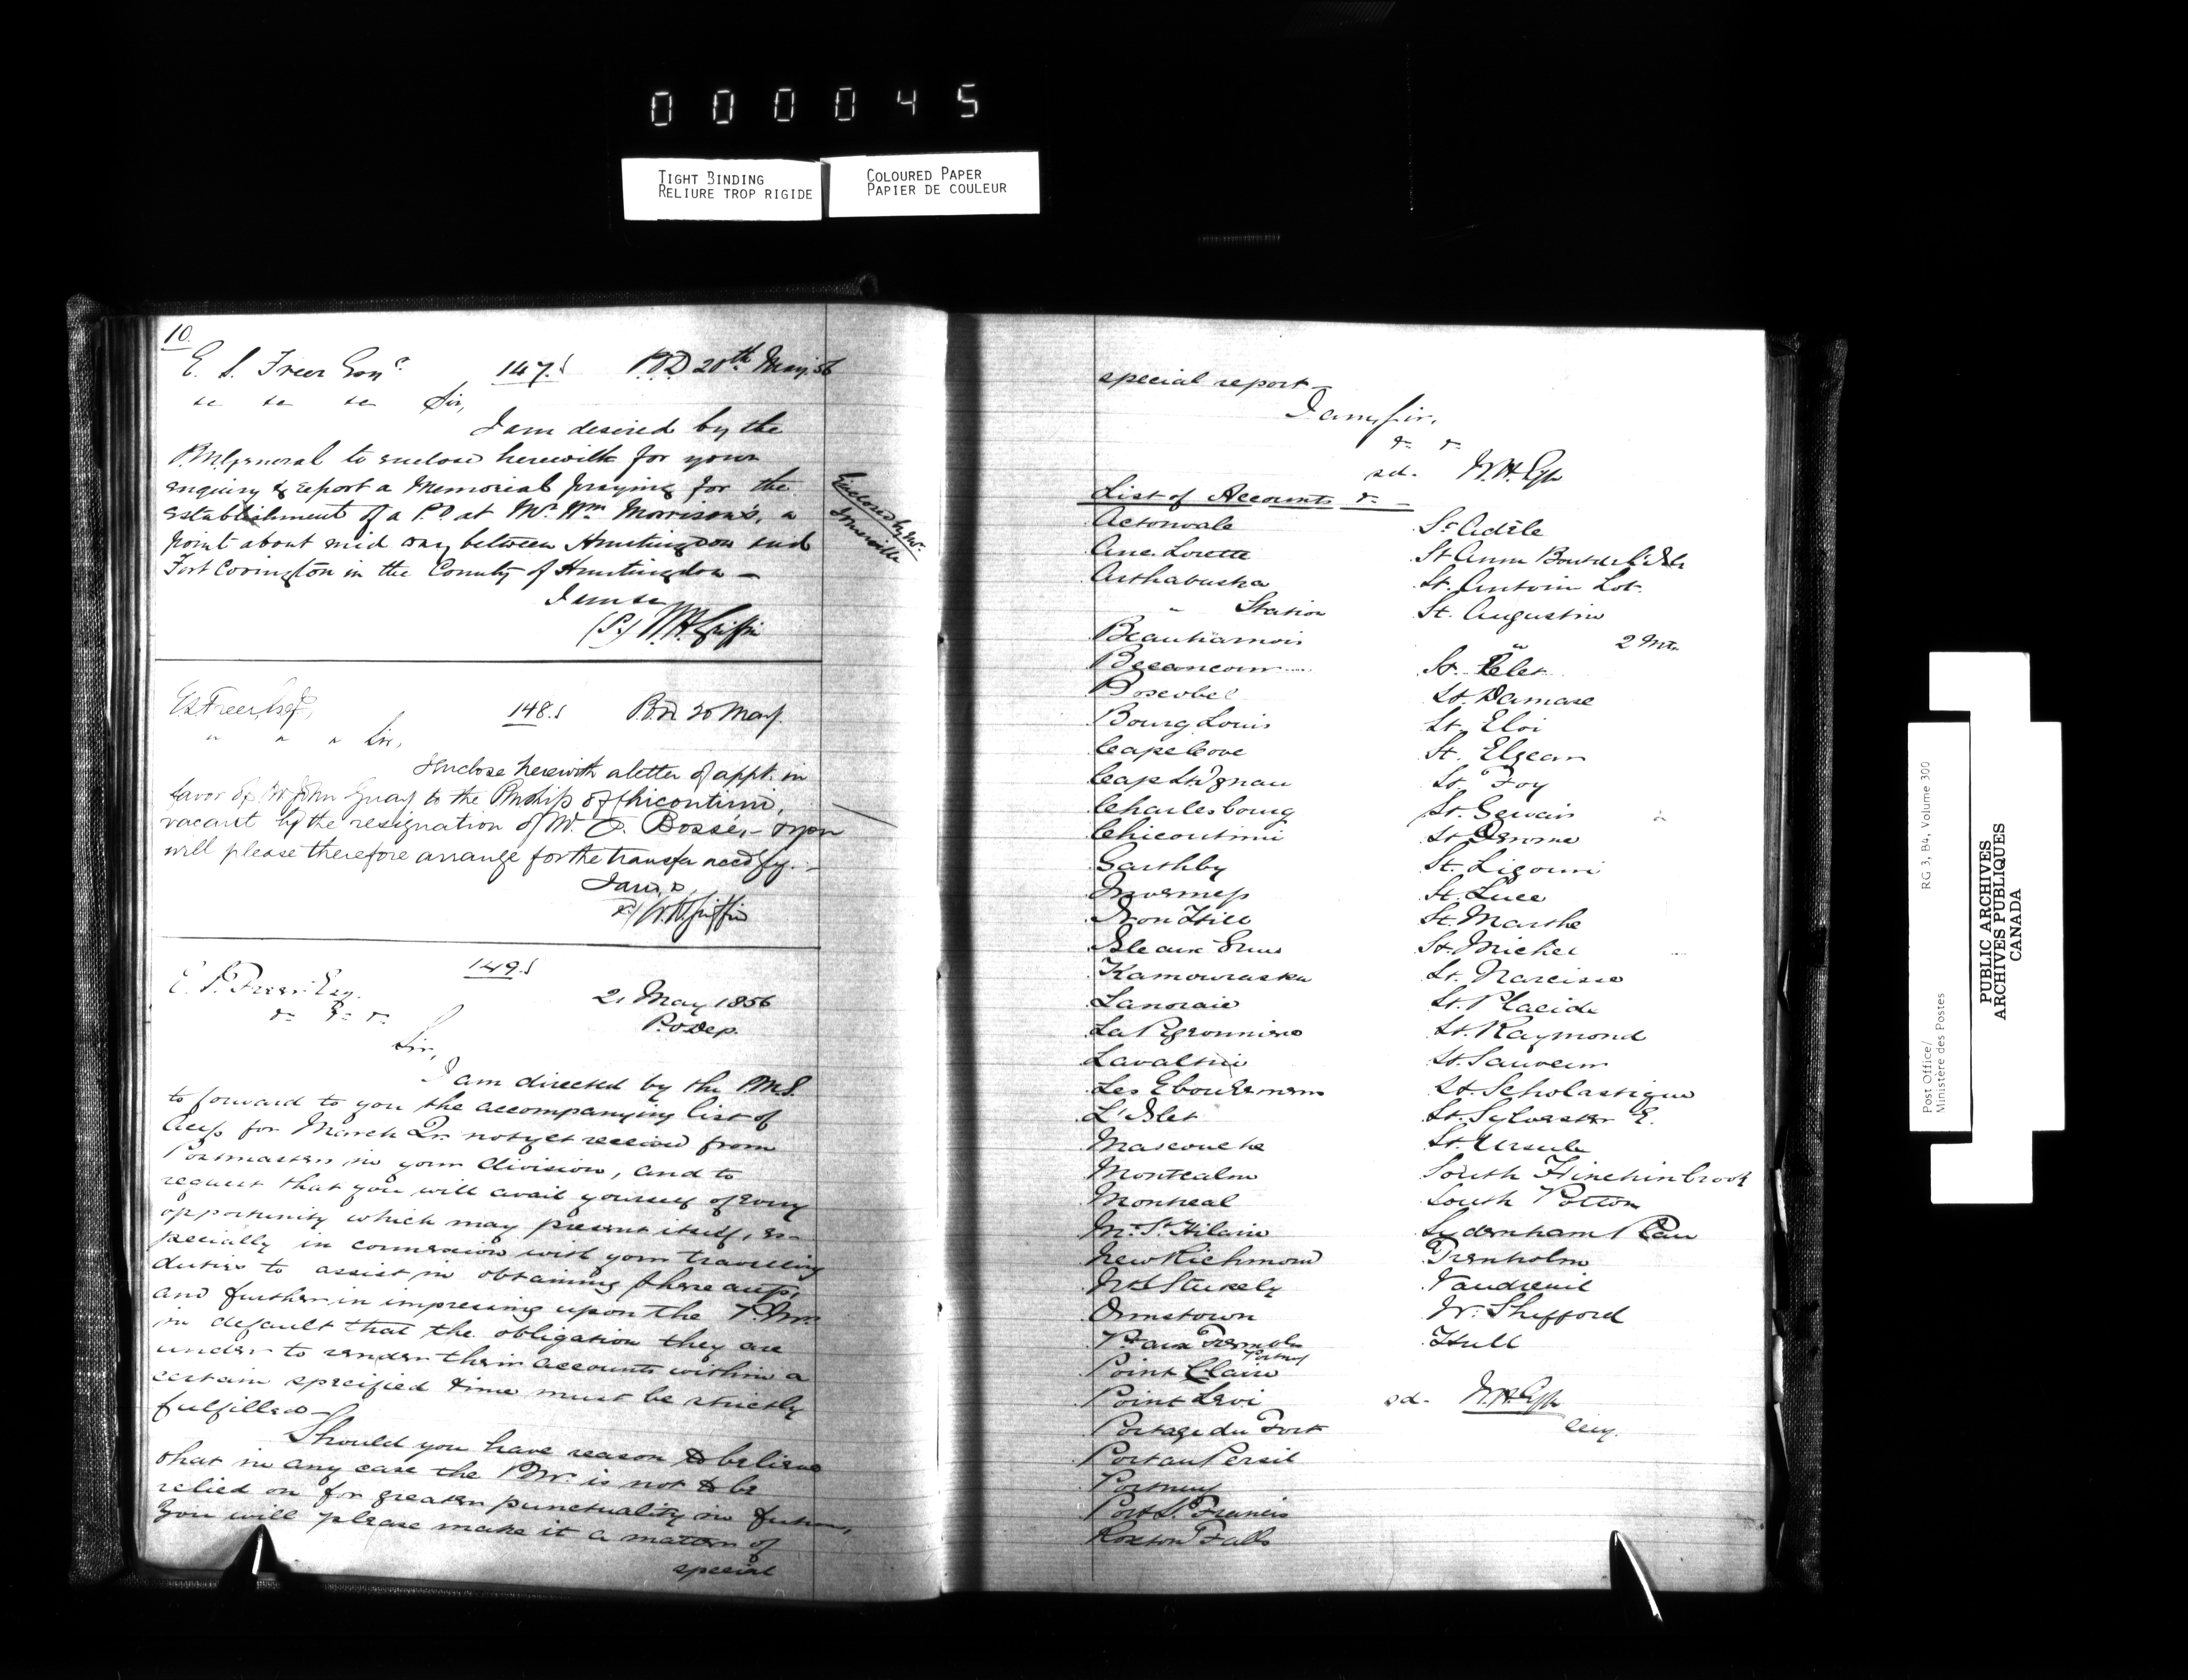 000045
TIGHT BINDING
RELIURE TROP RIGIDE
COLOURED PAPER
PAPIER DE COULEUR
10.
E. S. Freer Esqr 147.S P.O.D 20th May. 56
&c &c &c Sir,
I am desired by the
P.M. General to enclose herewith for your
enquiry & report a Memorial praying for the
establishment of a P.O. at Mr. Wm. Morrison's, a
point about mid way between Huntingdon and
Fort Covington in the County of Huntingdon —
I am &c
(S.) W.H. Griffin
Enclosed by Mr.
Somerville
E S Freer, Esqr, 148.S P.O.D 20 May.
" " " Sir,
I enclose herewith a letter of appt. in
favor of Mr John Guay to the Pmship of Chicoutimi,
vacant by the resignation of Mr. Bossé, — & you
will please therefore arrange for the transfer accdgly. —
I am, &
W.H. Griffin
149.S
E. S. Freer Esq.
& & & 21 May 1856
P.O Dep.
Sir,
I am directed by the P.M.G.
to forward to you the accompanying list of
Accts for March Qr. not yet received from
Postmasters in your division, and to
request that you will avail yourself of every
opportunity which may present itself, es-
pecially in connexion with your travelling
duties to assist in obtaining these accts,
and further in impressing upon the P.Mrs
in default that the obligation they are
under to render their accounts within a
certain specified time must be strictly
fulfilled —
Should you have reason to believe
that in any case the P.Mr. is not to be
relied on for greater punctuality in future,
You will please make it a matter of
special
special report —
I am, Sir,
&c &c
sd. W.H. G
List of Accounts &c —
Actonvale
Anc. Lorette
Arthabaska
" Station
Beauharnois
Becancour
Boscobel
Bourg Louis
Cape Cove
Cap St Ignace
Charlesbourg
Chicoutimi
Garthby
Inverness
Iron Hill
Isle aux Grues
Kamouraska
Lanoraie
La Pigeonniere
Lavaltrie
Les Eboulemens
L'Islet
Mascouche
Montcalm
Montreal
Mt. St. Hilaire
New Richmond
Nth Stukely
Ormstown
Pt aux Trembles
Portneuf
Point Claire
Point Levi
Portage du Fort
Port au Persil
Portneuf
Port St. Francis
Roxton Falls
St Adèle
St Anne Bout de L'Isle
St. Antoine Lot.
St. Augustin
" 2 Mts
St. Celest
St. Damase
St. Eloi
St. Elzear
St. Foy
St. Gervais
St. Jerome
St. Ligouri
St. Luce
St. Marthe
St. Michel
St. Narcisse
St. Placide
St. Raymond
St. Sauveur
St. Scholastique
St. Sylvester E.
St. Ursule
South Hinchinbrook
South Potton
Sydenham Place
Trenholm
Vaudreuil
W. Shefford
Hull
sd. W.H. G
Secy.
Post Office/
Ministère des Postes
RG 3, B4, Volume 300
PUBLIC ARCHIVES
ARCHIVES PUBLIQUES
CANADA